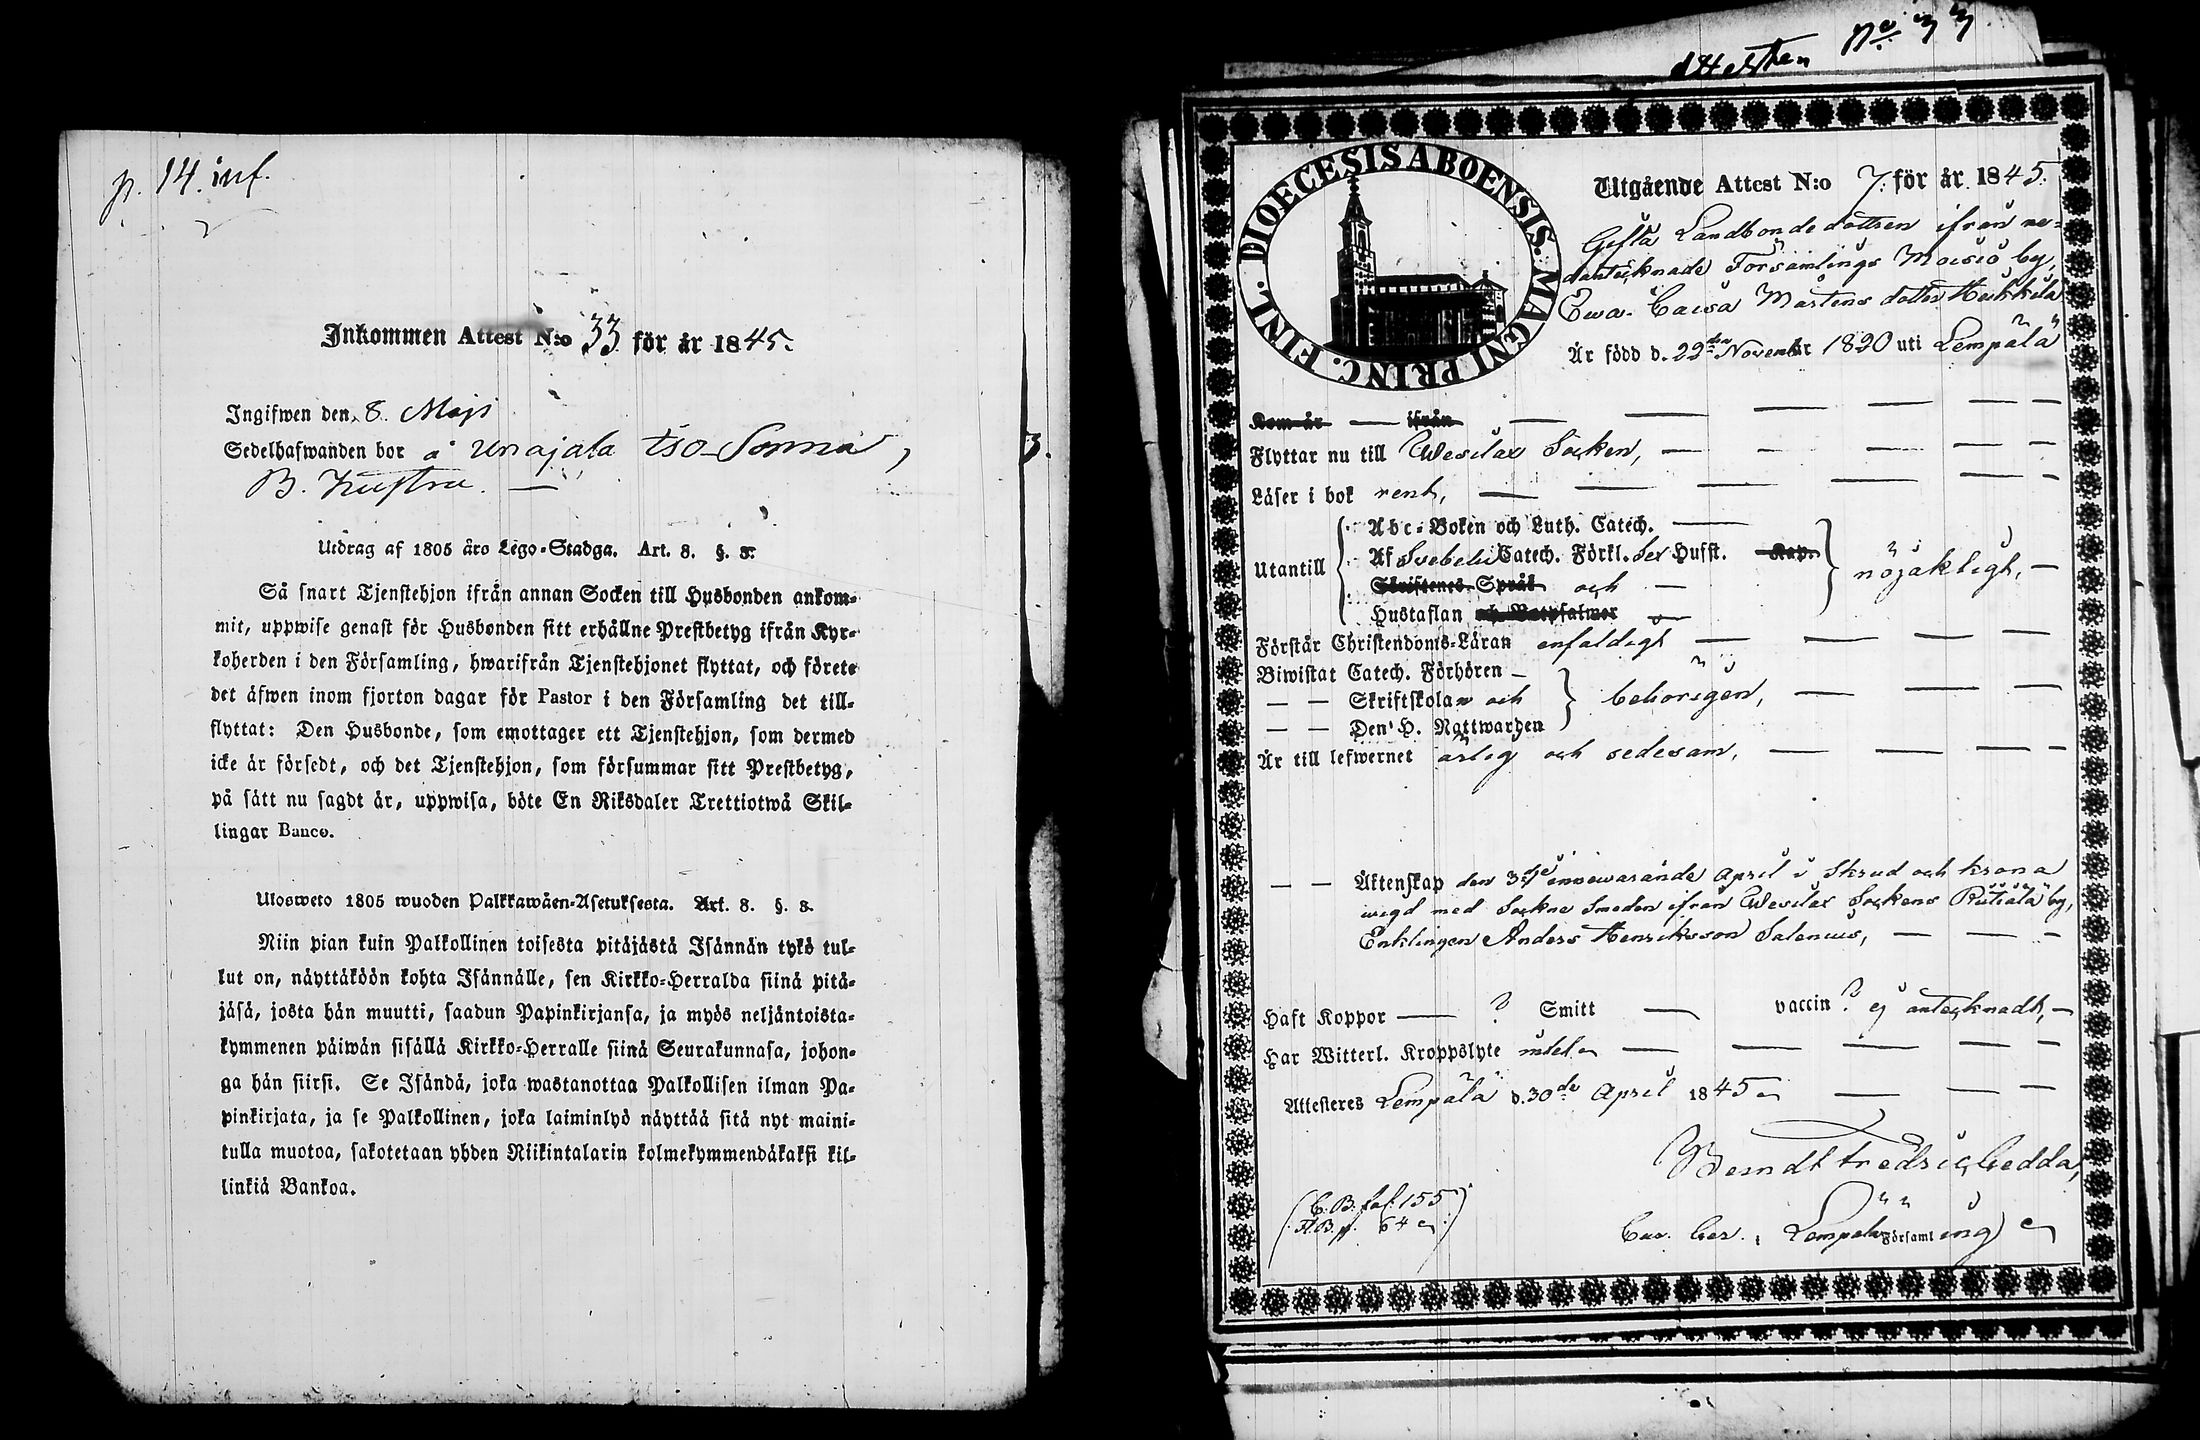 p. 14. inf.
Inkommen Attest N:o 33 för år 1845.
Ingifwen den 8 Maji
Sedelhafwanden bor å Unajala Iso-Sonna,
B. Hustru. —
Utdrag af 1805 års Lego-Stadga. Art. 8. §. 8.
Så snart Tjenstehjon ifrån annan Socken till Husbonden ankom-
mit, uppwise genast för Husbonden sitt erhållne Prestbetyg ifrån Kyr-
koherden i den Församling, hwarifrån Tjenstehjonet flyttat, och förete
det äfwen inom fjorton dagar för Pastor i den Församling det till-
flyttat: Den Husbonde, som emottager ett Tjenstehjon, som dermed
icke är försedt, och det Tjenstehjon, som försummar sitt Prestbetyg,
på sätt nu sagdt är, uppwisa, böte En Riksdaler Trettiotwå Skil-
lingar Banco.
Ulosweto 1805 wuoden Palkkawäen-Asetuksesta. Art. 8. §. 8.
Niin pian kuin Palkollinen toisesta pitäjästä Isännän tykö tul-
lut on, näyttäköön kohta Isännälle, sen Kirkko-Herralda siinä pitä-
jäsä, josta hän muutti, saadun Papinkirjansa, ja myös neljäntoista-
kymmenen päiwän sisällä Kirkko-Herralle siinä Seurakunnasa, johon-
ga hän siirsi. Se Isändä, joka wastanottaa Palkollisen ilman Pa-
pinkirjata, ja se Palkollinen, joka laiminlyö näyttää sitä nyt maini-
tulla muotoa, sakotetaan yhden Riikintalarin kolmekymmendäkaksi kil-
linkiä Bankoa.
3.
Attesten No 33
DIOECESIS ABOENSIS. MAGNI PRINC. FINL.
Utgående Attest N:o 7. för år 1845.
Gifta Landbondedottren ifrån ne-
dantecknade Församlings Moisio by,
Ewa Caisa Mårtensdotter Heikkilä
Är född d. 22dra Novembr 1820 uti Lempälä
Kom år — ifrån — — — — —
Flyttar nu till Wesilax Socken, — — — —
Läser i bok rent, — — — — —
Utantill
Abc-Boken och Luth. Catech. —
Af Svebelii Catech. Förkl. Sex Husst. Kap.
Skriftenes Språk och —
Hustaflan och Botpsalmer —
nöjaktigt, —
Förstår Christendoms-Läran enfaldigt — — — —
Biwistat Catech. Förhören —
— — Skriftskolan och
— — Den H. Nattwarden
behörigen, — — —
Är till lefwernet ärlig och sedesam, — — — —
— — Äktenskap den 3dje innewarande April i skrud och krona
wigd med Sockne Smeden ifrån Wesilax Sockens Rutiala by,
Enklingen Anders Henriksson Salenius, — — —
Haft Koppor — ? Smitt — vaccin ? ej antecknadt, —
Har Witterl. Kroppslyte intet — — — — —
Attesteres Lempälä d. 30de April 1845 — — —
Berndt Fredric Gedda,
(C.B. fol. 155
H.B. p. 64)
Cur. Ger. i Lempälä Församling